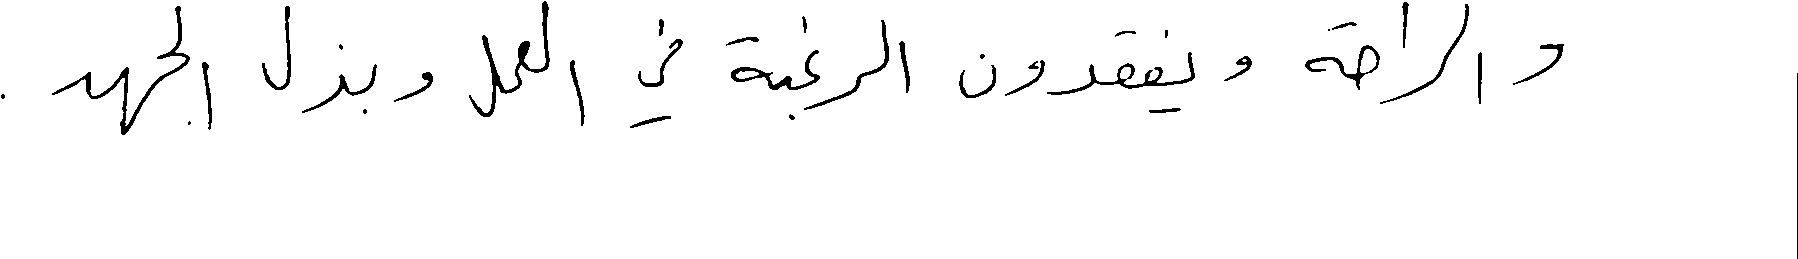 والراحة ويفقدون الرغبة في العمل وبذل الجهد .